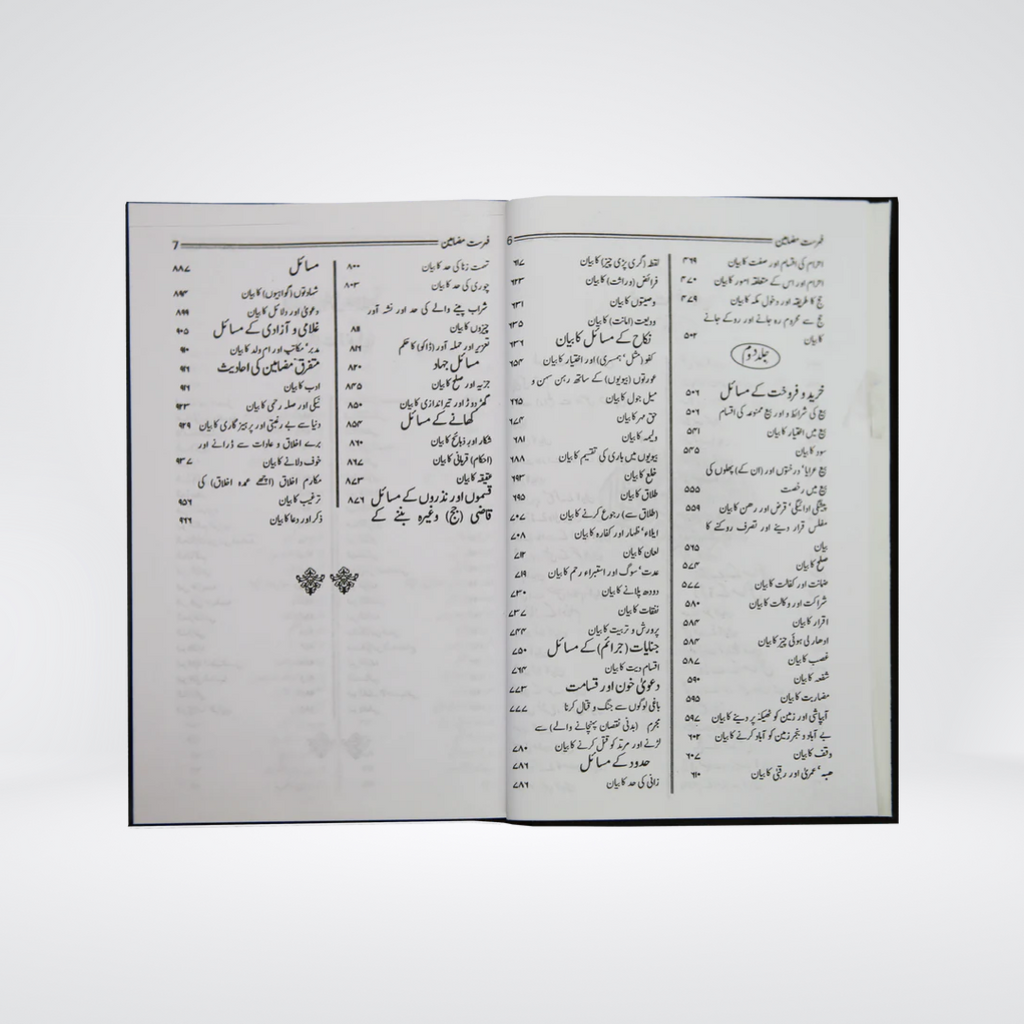 فہرست مضامین 6
احرام کی اقسام اور صفت کا بیان ۴۶۹
احرام اور اس کے متعلقہ امور کا بیان ۴۷۰
حج کا طریقہ اور دخول مکہ کا بیان ۴۷۹
حج سے محروم رہ جانے اور روکے جانے
کا بیان ۵۰۲
جلد دوم
خرید و فروخت کے مسائل ۵۰۶
بیع کی شرائط و اور بیع ممنوعہ کی اقسام ۵۰۶
بیع میں اختیار کا بیان ۵۴۱
سود کا بیان ۵۴۵
بیع عرایا' درختوں اور (ان کے) پھلوں کی
بیع میں رخصت ۵۵۵
پیشگی ادائیگی' قرض اور رھن کا بیان ۵۵۹
مفلس قرار دینے اور تصرف روکنے کا
بیان ۵۶۵
صلح کا بیان ۵۷۴
ضمانت اور کفالت کا بیان ۵۷۷
شراکت اور وکالت کا بیان ۵۸۰
اقرار کا بیان ۵۸۴
ادھار لی ہوئی چیز کا بیان ۵۸۴
غصب کا بیان ۵۸۷
شفعہ کا بیان ۵۹۰
مضاربت کا بیان ۵۹۵
آبپاشی اور زمین کو ٹھیکہ پر دینے کا بیان ۵۹۷
بے آباد و بنجر زمین کو آباد کرنے کا بیان ۶۰۲
وقف کا بیان ۶۰۷
ھبہ' عمریٰ اور رقبیٰ کا بیان ۶۱۰
لقطہ (گری پڑی چیز) کا بیان ۶۱۷
فرائض (وراثت) کا بیان ۶۲۳
وصیتوں کا بیان ۶۳۱
ودیعت (امانت) کا بیان ۶۳۵
نکاح کے مسائل کا بیان ۶۳۶
کفو (مثل' ہمسری) اور اختیار کا بیان ۶۵۴
عورتوں (بیویوں) کے ساتھ رہن سہن و
میل جول کا بیان ۶۶۵
حق مہر کا بیان ۶۷۴
ولیمہ کا بیان ۶۸۱
بیویوں میں باری کی تقسیم کا بیان ۶۸۸
خلع کا بیان ۶۹۳
طلاق کا بیان ۶۹۵
(طلاق سے) رجوع کرنے کا بیان ۷۰۷
ایلاء' ظہار اور کفارہ کا بیان ۷۰۸
لعان کا بیان ۷۱۲
عدت' سوگ اور استبراء رحم کا بیان ۷۱۹
دودھ پلانے کا بیان ۷۳۰
نفقات کا بیان ۷۳۷
پرورش و تربیت کا بیان ۷۴۴
جنایات (جرائم) کے مسائل ۷۵۰
اقسام دیت کا بیان ۷۶۴
دعویٰ خون اور قسامت ۷۷۳
باغی لوگوں سے جنگ و قتال کرنا ۷۷۷
مجرم (بدنی نقصان پہنچانے والے) سے
لڑنے اور مرتد کو قتل کرنے کا بیان ۷۸۰
حدود کے مسائل ۷۸۶
زانی کی حد کا بیان ۷۸۶
فہرست مضامین 7
تہمت زنا کی حد کا بیان ۸۰۰
چوری کی حد کا بیان ۸۰۳
شراب پینے والے کی حد اور نشہ آور
چیزوں کا بیان ۸۱۱
تعزیر اور حملہ آور (ڈاکو) کا حکم ۸۱۶
مسائل جہاد ۸۲۰
جزیہ اور صلح کا بیان ۸۴۵
گھڑ دوڑ اور تیراندازی کا بیان ۸۵۰
کھانے کے مسائل ۸۵۴
شکار اور ذبائح کا بیان ۸۶۰
(احکام) قربانی کا بیان ۸۶۷
عقیقہ کا بیان ۸۷۳
قسموں اور نذروں کے مسائل ۸۷۶
قاضی (جج) وغیرہ بننے کے
مسائل ۸۸۷
شہادتوں (گواہیوں) کا بیان ۸۹۴
دعویٰ اور دلائل کا بیان ۸۹۹
غلامی و آزادی کے مسائل ۹۰۵
مدبر' مکاتب اور ام ولد کا بیان ۹۱۰
متفرق مضامین کی احادیث ۹۱۶
ادب کا بیان ۹۱۶
نیکی اور صلہ رحمی کا بیان ۹۲۳
دنیا سے بے رغبتی اور پرہیزگاری کا بیان ۹۲۹
برے اخلاق و عادات سے ڈرانے اور
خوف دلانے کا بیان ۹۳۷
مکارم اخلاق (اچھے عمدہ اخلاق) کی
ترغیب کا بیان ۹۵۶
ذکر اور دعا کا بیان ۹۶۶